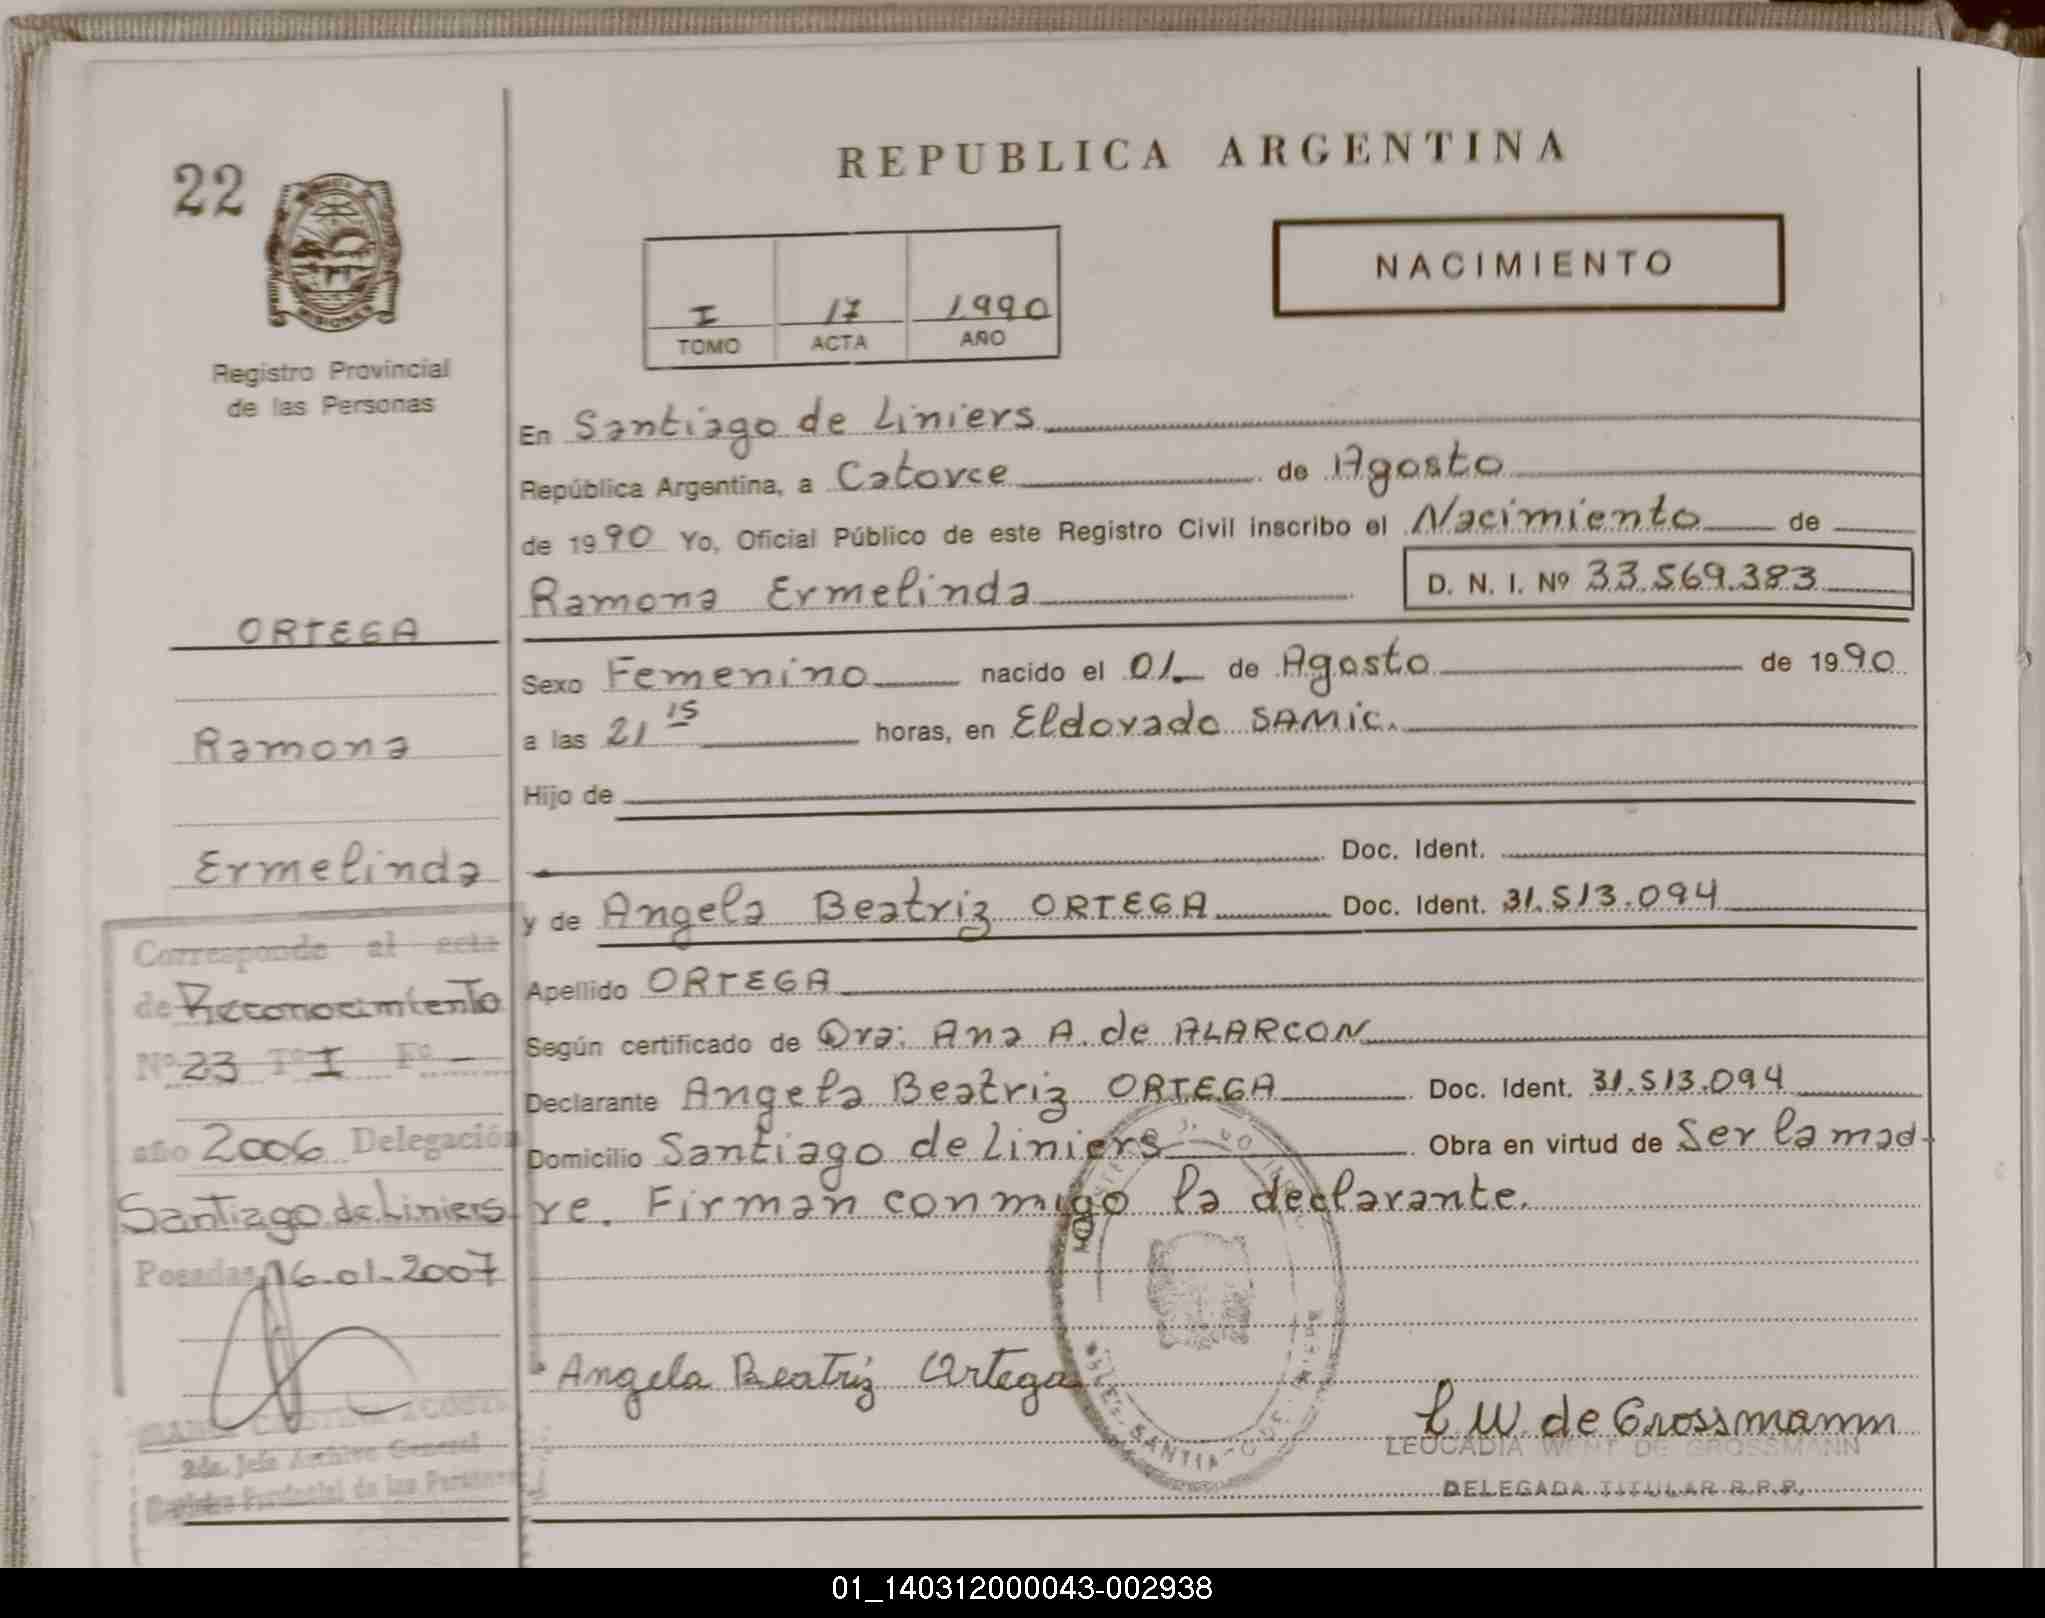 22
REPUBLICA ARGENTINA
MISIONES
NACIMIENTO
I 17 1990
TOMO ACTA AÑO
Registro Provincial
de las Personas
En Santiago de Liniers
República Argentina, a Catorce de Agosto
de 1990 Yo, Oficial Público de este Registro Civil inscribo el Nacimiento de
Ramona Ermelinda D. N. I. Nº 33.569.383
ORTEGA
Ramona
Ermelinda
Sexo Femenino nacido el 01 de Agosto de 1990
a las 21 15 horas, en Eldorado SAMIC.
Hijo de
Doc. Ident.
y de Angela Beatriz ORTEGA Doc. Ident. 31.513.094
Apellido ORTEGA
Según certificado de Dra: Ana A. de ALARCON
Declarante Angela Beatriz ORTEGA Doc. Ident. 31.513.094
Domicilio Santiago de Liniers Obra en virtud de Ser la mad-
re. Firman conmigo la declarante.
Corresponde al acta
de Reconocimiento
Nº 23 Tº I Fº -
año 2006 Delegación
Santiago de Liniers
Posadas, 16-01-2007
2da. Jefe Archivo General
Registro Provincial de las Personas
Angela Beatriz Ortega
L W. de Grossmann
LEOCADIA WENT DE GROSSMANN
DELEGADA TITULAR R.P.P.
01_140312000043-002938